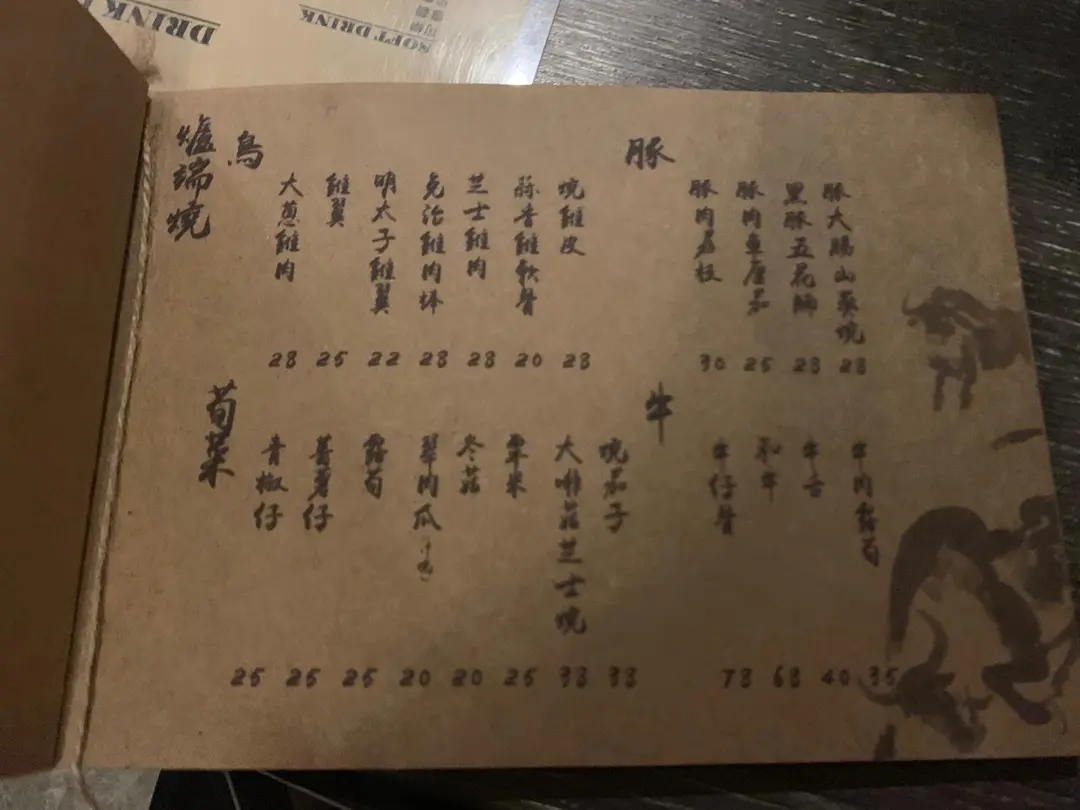 DRINK
SOFT DRINK
爐端燒
鳥
大蔥雞肉
28
雞翼
25
明太子雞翼
22
免治雞肉棒
28
芝士雞肉
28
蒜香雞軟骨
20
燒雞皮
28
豚
豚肉荔枝
30
豚肉車厘茄
25
黑豚五花腩
28
豚大腸山葵燒
28
荀菜
青椒仔
25
薯仔
25
露荀
25
翠肉瓜
20
冬菇
20
粟米
25
大啡菇芝士燒
38
燒茄子
38
牛
牛仔骨
78
和牛
68
牛舌
40
牛肉露荀
35